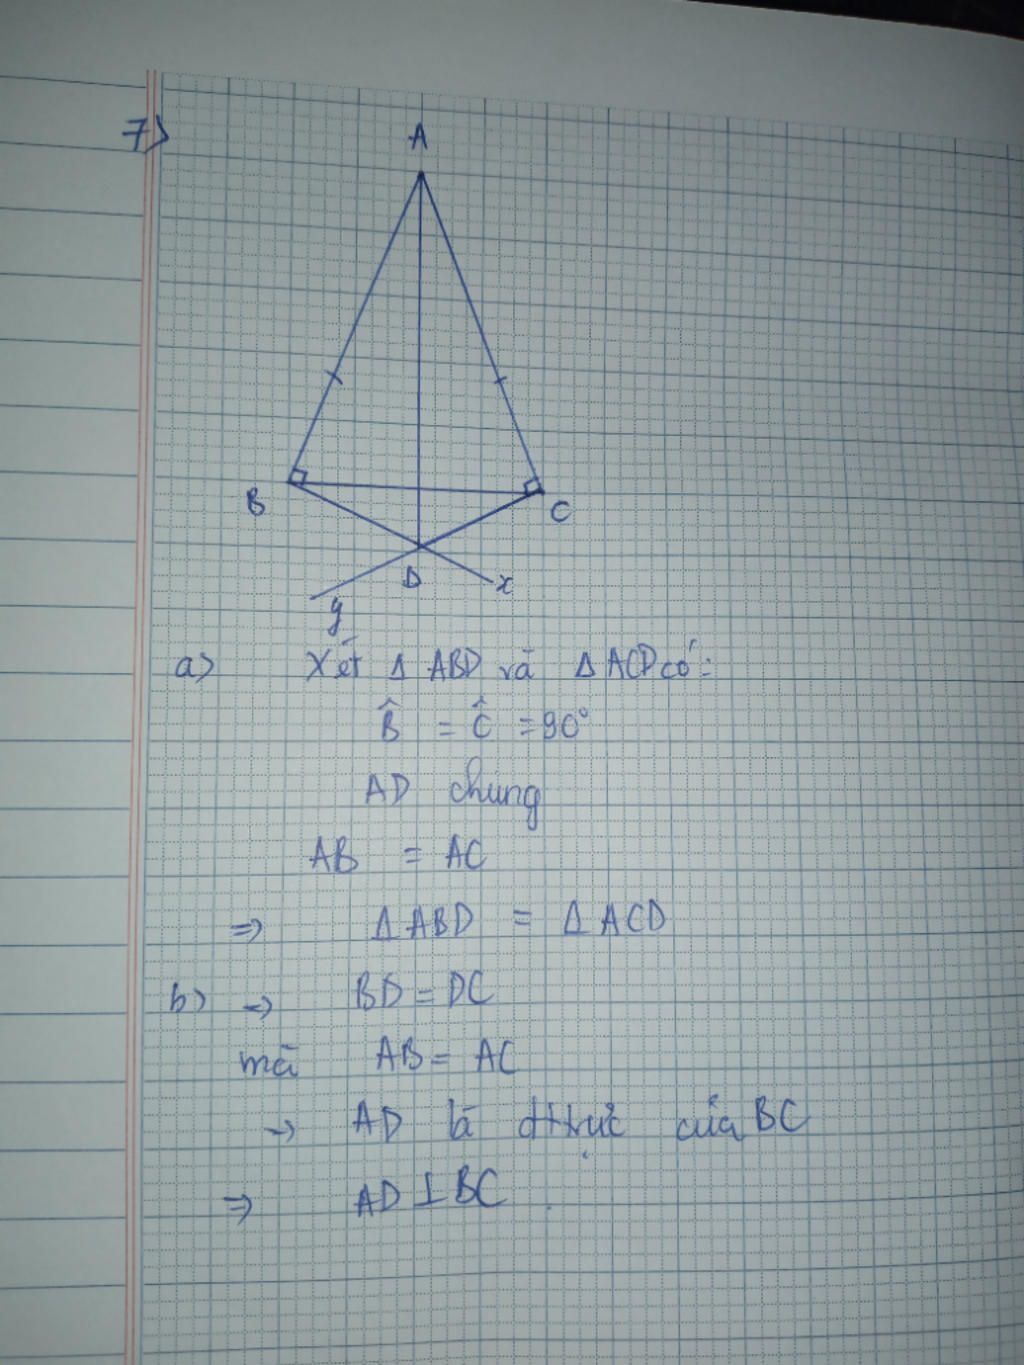 7)
A
B
C
D
x
y
a) Xét Δ ABD và Δ ACD có:
B̂ = Ĉ = 90°
AD chung
AB = AC
⇒ Δ ABD = Δ ACD
b) → BD = DC
mà AB = AC
→ AD là đttrực của BC
⇒ AD ⊥ BC.